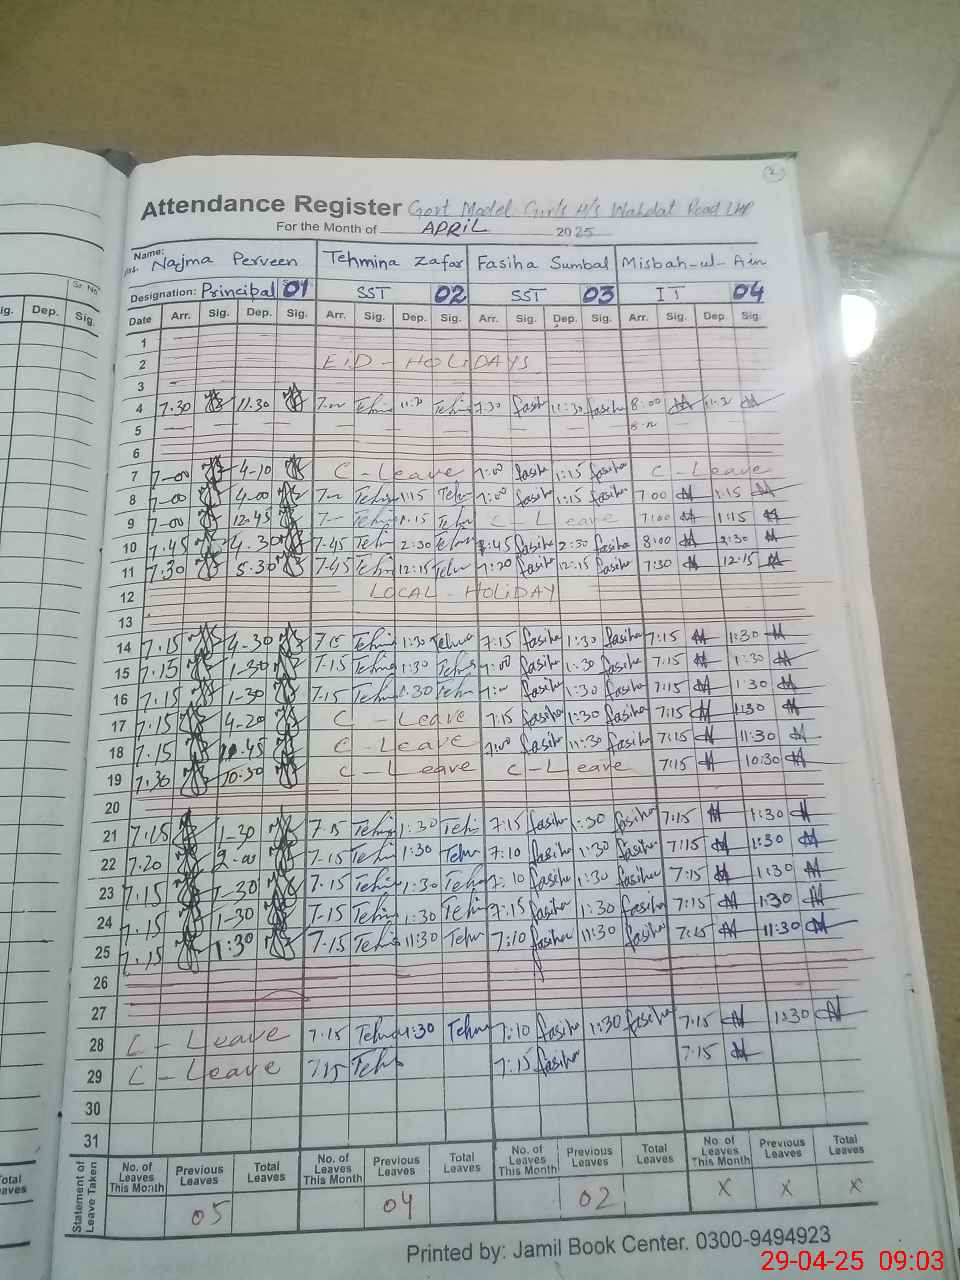 Attendance Register Govt Model Girls H/S Wahdat Road LHR
For the Month of APRIL 2025
Name: Najma Perveen Tehmina Zafar Fasiha Sumbal Misbah-ul-Ain
Designation: Principal 01 SST 02 SST 03 IT 04
Date Arr. Sig. Dep. Sig. Arr. Sig. Dep. Sig. Arr. Sig. Dep. Sig. Arr. Sig. Dep. Sig.
1
2 EID - HOLIDAYS
3
4 7.30 11.30 7.00 Tehmi 11:30 Tehmi 7:30 fasiha 11:30 fasiha 8:00 11.30
5
6
7 7-00 4-10 C-Leave 7:00 fasiha 1:15 fasiha C-Leave
8 7-00 4-00 7- Tehmi 1:15 Tehm 7:00 fasiha 1:15 fasiha 7 00 1:15
9 7-00 12.45 7- Tehmi 1.15 Tehm C-Leave 7:00 1:15
10 7.45 4.30 7-45 Tehm 2:30 Tehm 8:45 fasiha 2:30 fasiha 8:00 2:30
11 7.30 5.30 7-45 Tehm 12:15 Tehm 7:20 fasiha 12:15 fasiha 7:30 12:15
12 LOCAL - HOLIDAY
13
14 7.15 4-30 7.15 Tehmi 1:30 Tehmi 7:15 fasiha 1:30 fasiha 7:15 1:30
15 7.15 1-30 7-15 Tehmi 1:30 Tehmi 7:00 fasiha 1:30 fasiha 7:15 1:30
16 7.15 1-30 7.15 Tehmi 1.30 Tehm fasiha 1:30 fasiha 7:15 1:30
17 7.15 4-20 C-Leave 7:15 fasiha 1:30 fasiha 7:15 1:30
18 7.15 .45 C-Leave 7:00 fasiha 11:30 fasiha 7:15 11:30
19 7.30 10.30 C-Leave C-Leave 7:15 10:30
20
21 7.15 1-30 7.15 Tehmi 1:30 Tehmi 7:15 fasiha 1:30 fasiha 7:15 1:30
22 7.20 2-00 7-15 Tehmi 1:30 Tehm 7:10 fasiha 1:30 fasiha 7:15 1:30
23 7.15 1-30 7.15 Tehmi 1:30 Tehm 7:10 fasiha 1:30 fasiha 7:15 1:30
24 7.15 1-30 7-15 Tehmi 1:30 Tehmi 7:15 fasiha 1:30 fasiha 7:15 1:30
25 7.15 1:30 7-15 Tehmi 11:30 Tehm 7:10 fasiha 11:30 fasiha 7:15 11:30
26
27
28 C-Leave 7.15 Tehm 1:30 Tehm 7:10 fasiha 1:30 fasiha 7:15 1:30
29 C-Leave 7.15 Tehm 7:15 fasiha 7:15
30
31
Statement of Leave Taken No. of Leaves This Month Previous Leaves Total Leaves No. of Leaves This Month Previous Leaves Total Leaves No. of Leaves This Month Previous Leaves Total Leaves No. of Leaves This Month Previous Leaves Total Leaves
05 04 02 X X X
Printed by: Jamil Book Center. 0300-9494923
29-04-25 09:03